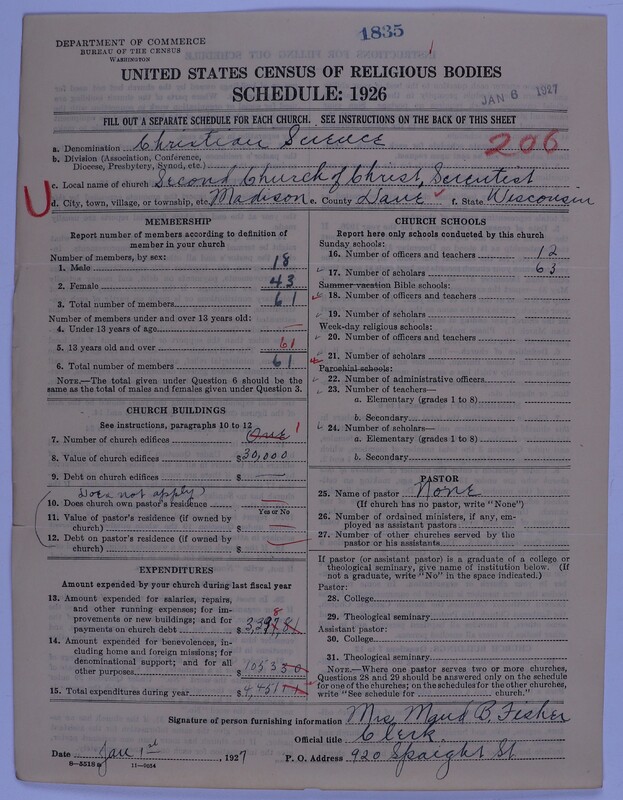 1835
DEPARTMENT OF COMMERCE
BUREAU OF THE CENSUS
WASHINGTON
UNITED STATES CENSUS OF RELIGIOUS BODIES
SCHEDULE: 1926
JAN 6 1927
FILL OUT A SEPARATE SCHEDULE FOR EACH CHURCH. SEE INSTRUCTIONS ON THE BACK OF THIS SHEET
206
a. Denomination Christian Science
b. Division (Association, Conference, Diocese, Presbytery, Synod, etc.)
c. Local name of church Second Church of Christ, Scientist
d. City, town, village, or township, etc. Madison e. County Dane f. State Wisconsin
MEMBERSHIP
Report number of members according to definition of member in your church
Number of members, by sex:
1. Male 18
2. Female 43
3. Total number of members 61
Number of members under and over 13 years old:
4. Under 13 years of age —
5. 13 years old and over 61
6. Total number of members 61
NOTE.—The total given under Question 6 should be the same as the total of males and females given under Question 3.
CHURCH BUILDINGS
See instructions, paragraphs 10 to 12
7. Number of church edifices One 1
8. Value of church edifices $30,000
9. Debt on church edifices $ —
Does not apply
10. Does church own pastor's residence —
Yes or No
11. Value of pastor's residence (if owned by church) $ —
12. Debt on pastor's residence (if owned by church) $ —
EXPENDITURES
Amount expended by your church during last fiscal year
13. Amount expended for salaries, repairs, and other running expenses; for improvements or new buildings; and for payments on church debt $3,397.81 8
14. Amount expended for benevolences, including home and foreign missions; for denominational support; and for all other purposes $1053
15. Total expenditures during year $4,451
CHURCH SCHOOLS
Report here only schools conducted by this church
Sunday schools:
16. Number of officers and teachers 12
17. Number of scholars 63
Summer vacation Bible schools:
18. Number of officers and teachers
19. Number of scholars
Week-day religious schools:
20. Number of officers and teachers
21. Number of scholars
Parochial schools:
22. Number of administrative officers
23. Number of teachers—
a. Elementary (grades 1 to 8)
b. Secondary
24. Number of scholars—
a. Elementary (grades 1 to 8)
b. Secondary
PASTOR
25. Name of pastor None
(If church has no pastor, write "None")
26. Number of ordained ministers, if any, employed as assistant pastors
27. Number of other churches served by the pastor or his assistants
If pastor (or assistant pastor) is a graduate of a college or theological seminary, give name of institution below. (If not a graduate, write "No" in the space indicated.)
Pastor:
28. College
29. Theological seminary
Assistant pastor:
30. College
31. Theological seminary
NOTE.—Where one pastor serves two or more churches, Questions 28 and 29 should be answered only on the schedule for one of the churches; on the schedules for the other churches, write "See schedule for church."
Signature of person furnishing information Mrs. Maud B. Fisher
Official title Clerk
Date Jan 1st, 1927 P. O. Address 920 Spaight St
8-5518 11-9034